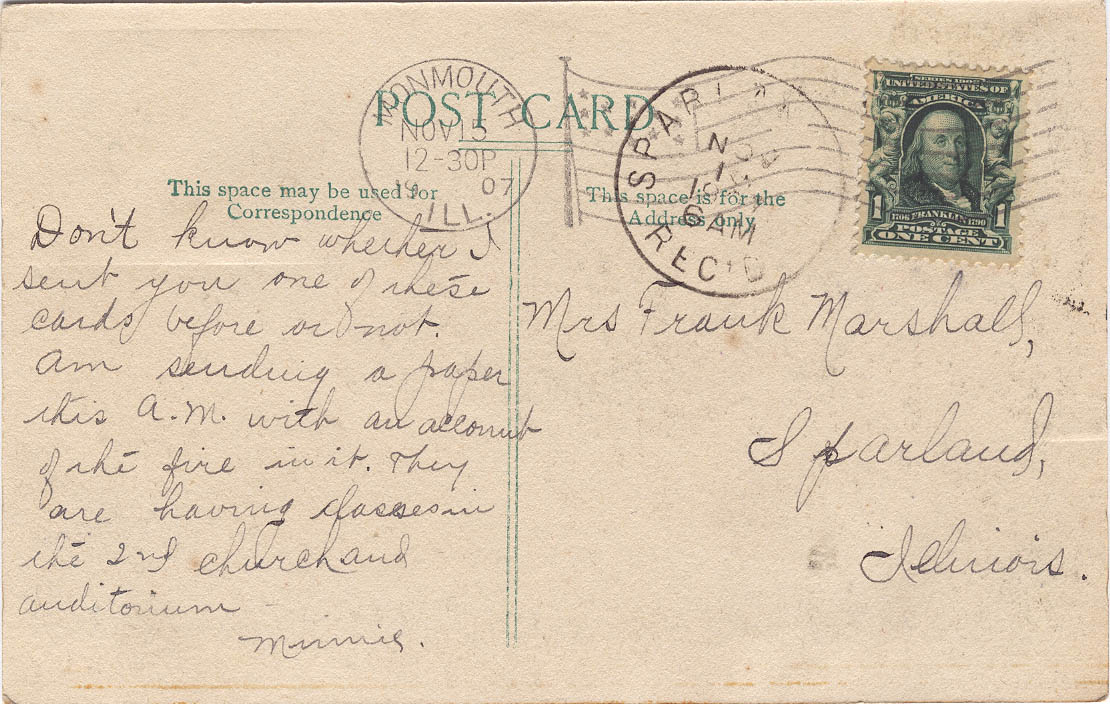 POST CARD
MONMOUTH
NOV 15
12-30P
1907
ILL.
SPARL
NOV
6 AM
REC'D
SERIES 1902
UNITED STATES OF
AMERICA
1 1706 FRANKLIN 1790 1
POSTAGE
ONE CENT
This space may be used for
Correspondence
This space is for the
Address only
Don't know whether I
sent you one of these
cards before or not.
Am sending a paper
this A.M. with an account
of the fire in it. They
are having classes in
the 2nd church and
auditorium
Minnie.
Mrs Frank Marshall,
Sparland,
Illinois.